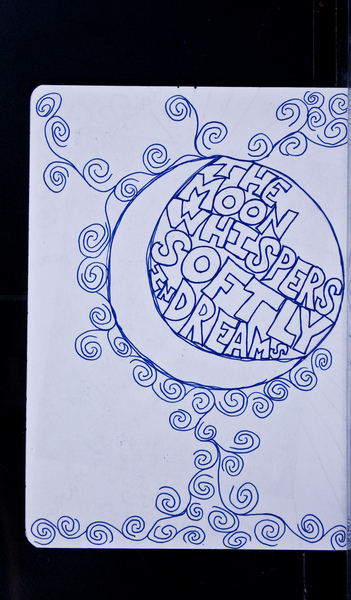 THE
MOON
WHISPERS
SOFTLY
IN
DREAMS